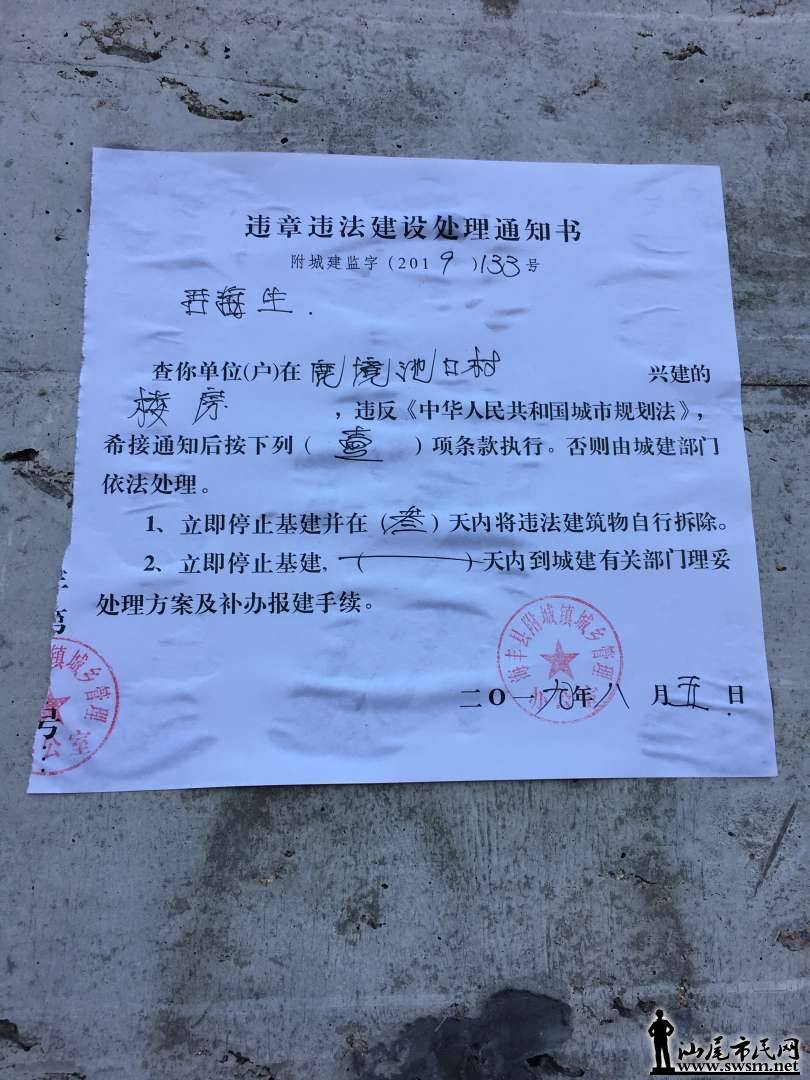 违章违法建设处理通知书
附城建监字(2019)133号
海生.
查你单位(户)在鹿境池口村 兴建的
楼房 ,违反《中华人民共和国城市规划法》,
希接通知后按下列(壹)项条款执行。否则由城建部门
依法处理。
1、立即停止基建并在(叁)天内将违法建筑物自行拆除。
2、立即停止基建,( )天内到城建有关部门理妥
处理方案及补办报建手续。
海丰县附城镇城乡管理办公室
二〇一九年八月五日
第
镇城乡管理
公室
号
汕尾市民网
www.swsm.net